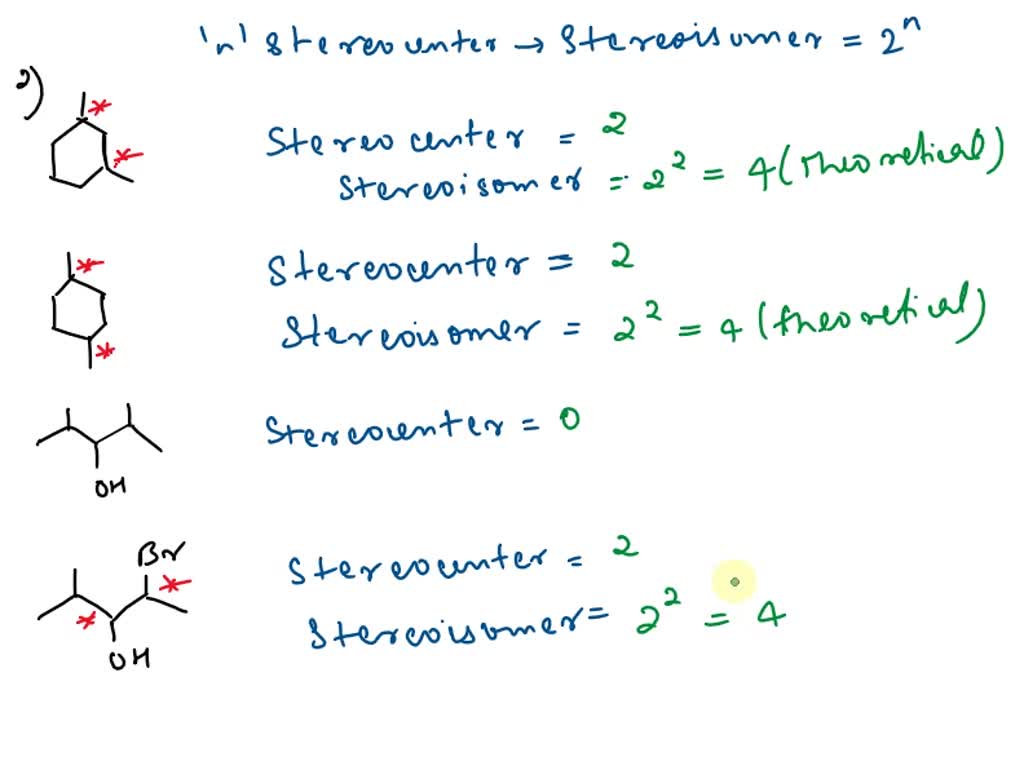 'n' stereocenter → stereoisomer = 2ⁿ
2)
*
*
Stereocenter = 2
Stereoisomer = 2² = 4 (theoretical)
*
*
Stereocenter = 2
Stereoisomer = 2² = 4 (theoretical)
Stereocenter = 0
OH
Br
*
*
OH
Stereocenter = 2
Stereoisomer = 2² = 4